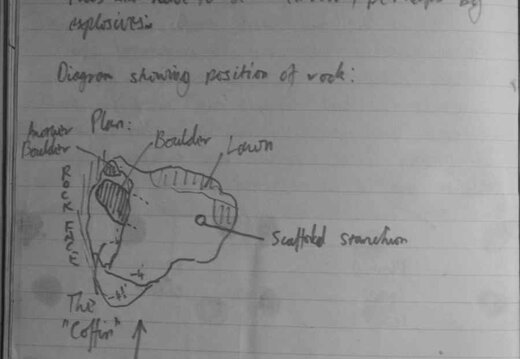 perhaps by
explosives.
Diagram showing position of rock:
Plan:
Another
Boulder
Boulder
Lawn
ROCK
FACE
Scaffold stanchion
The
"Coffin"